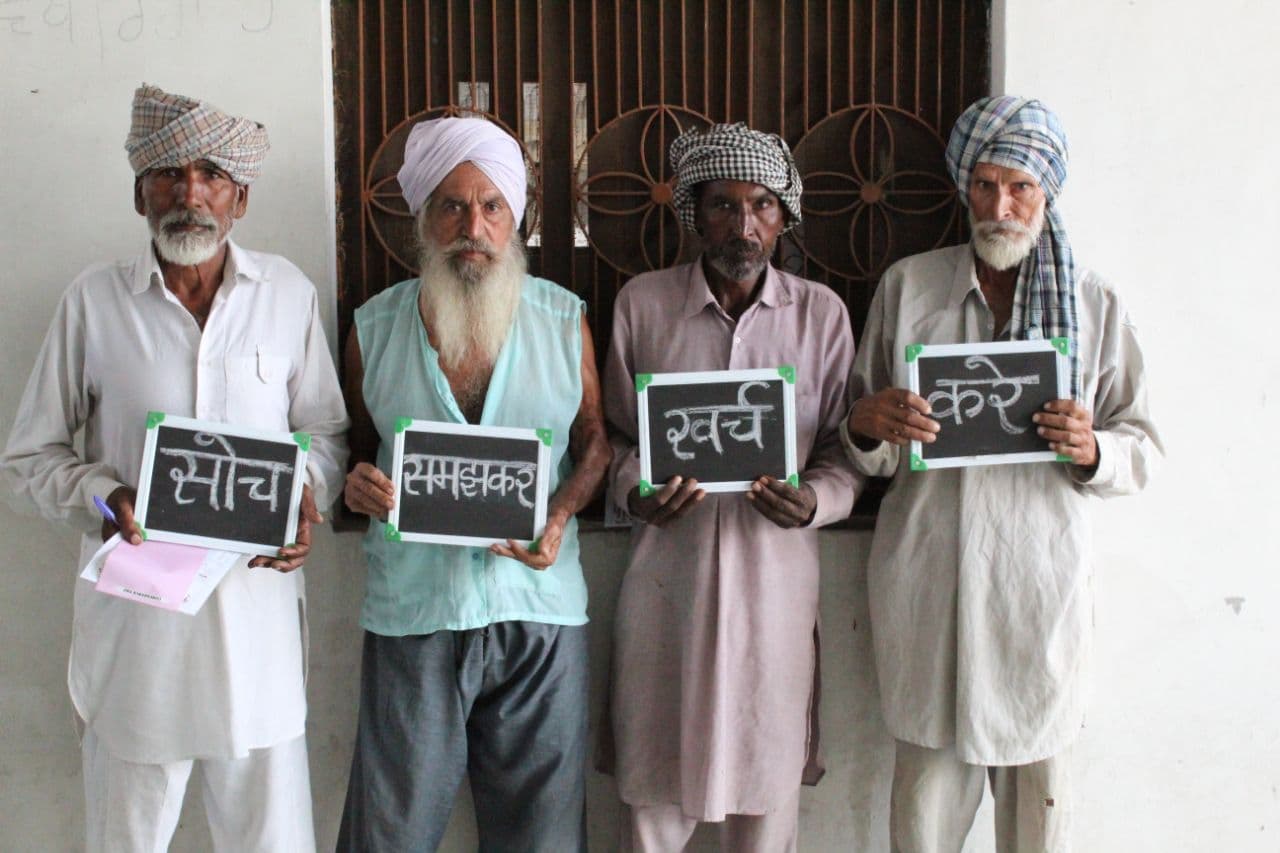 सोच
समझकर
खर्च
करे